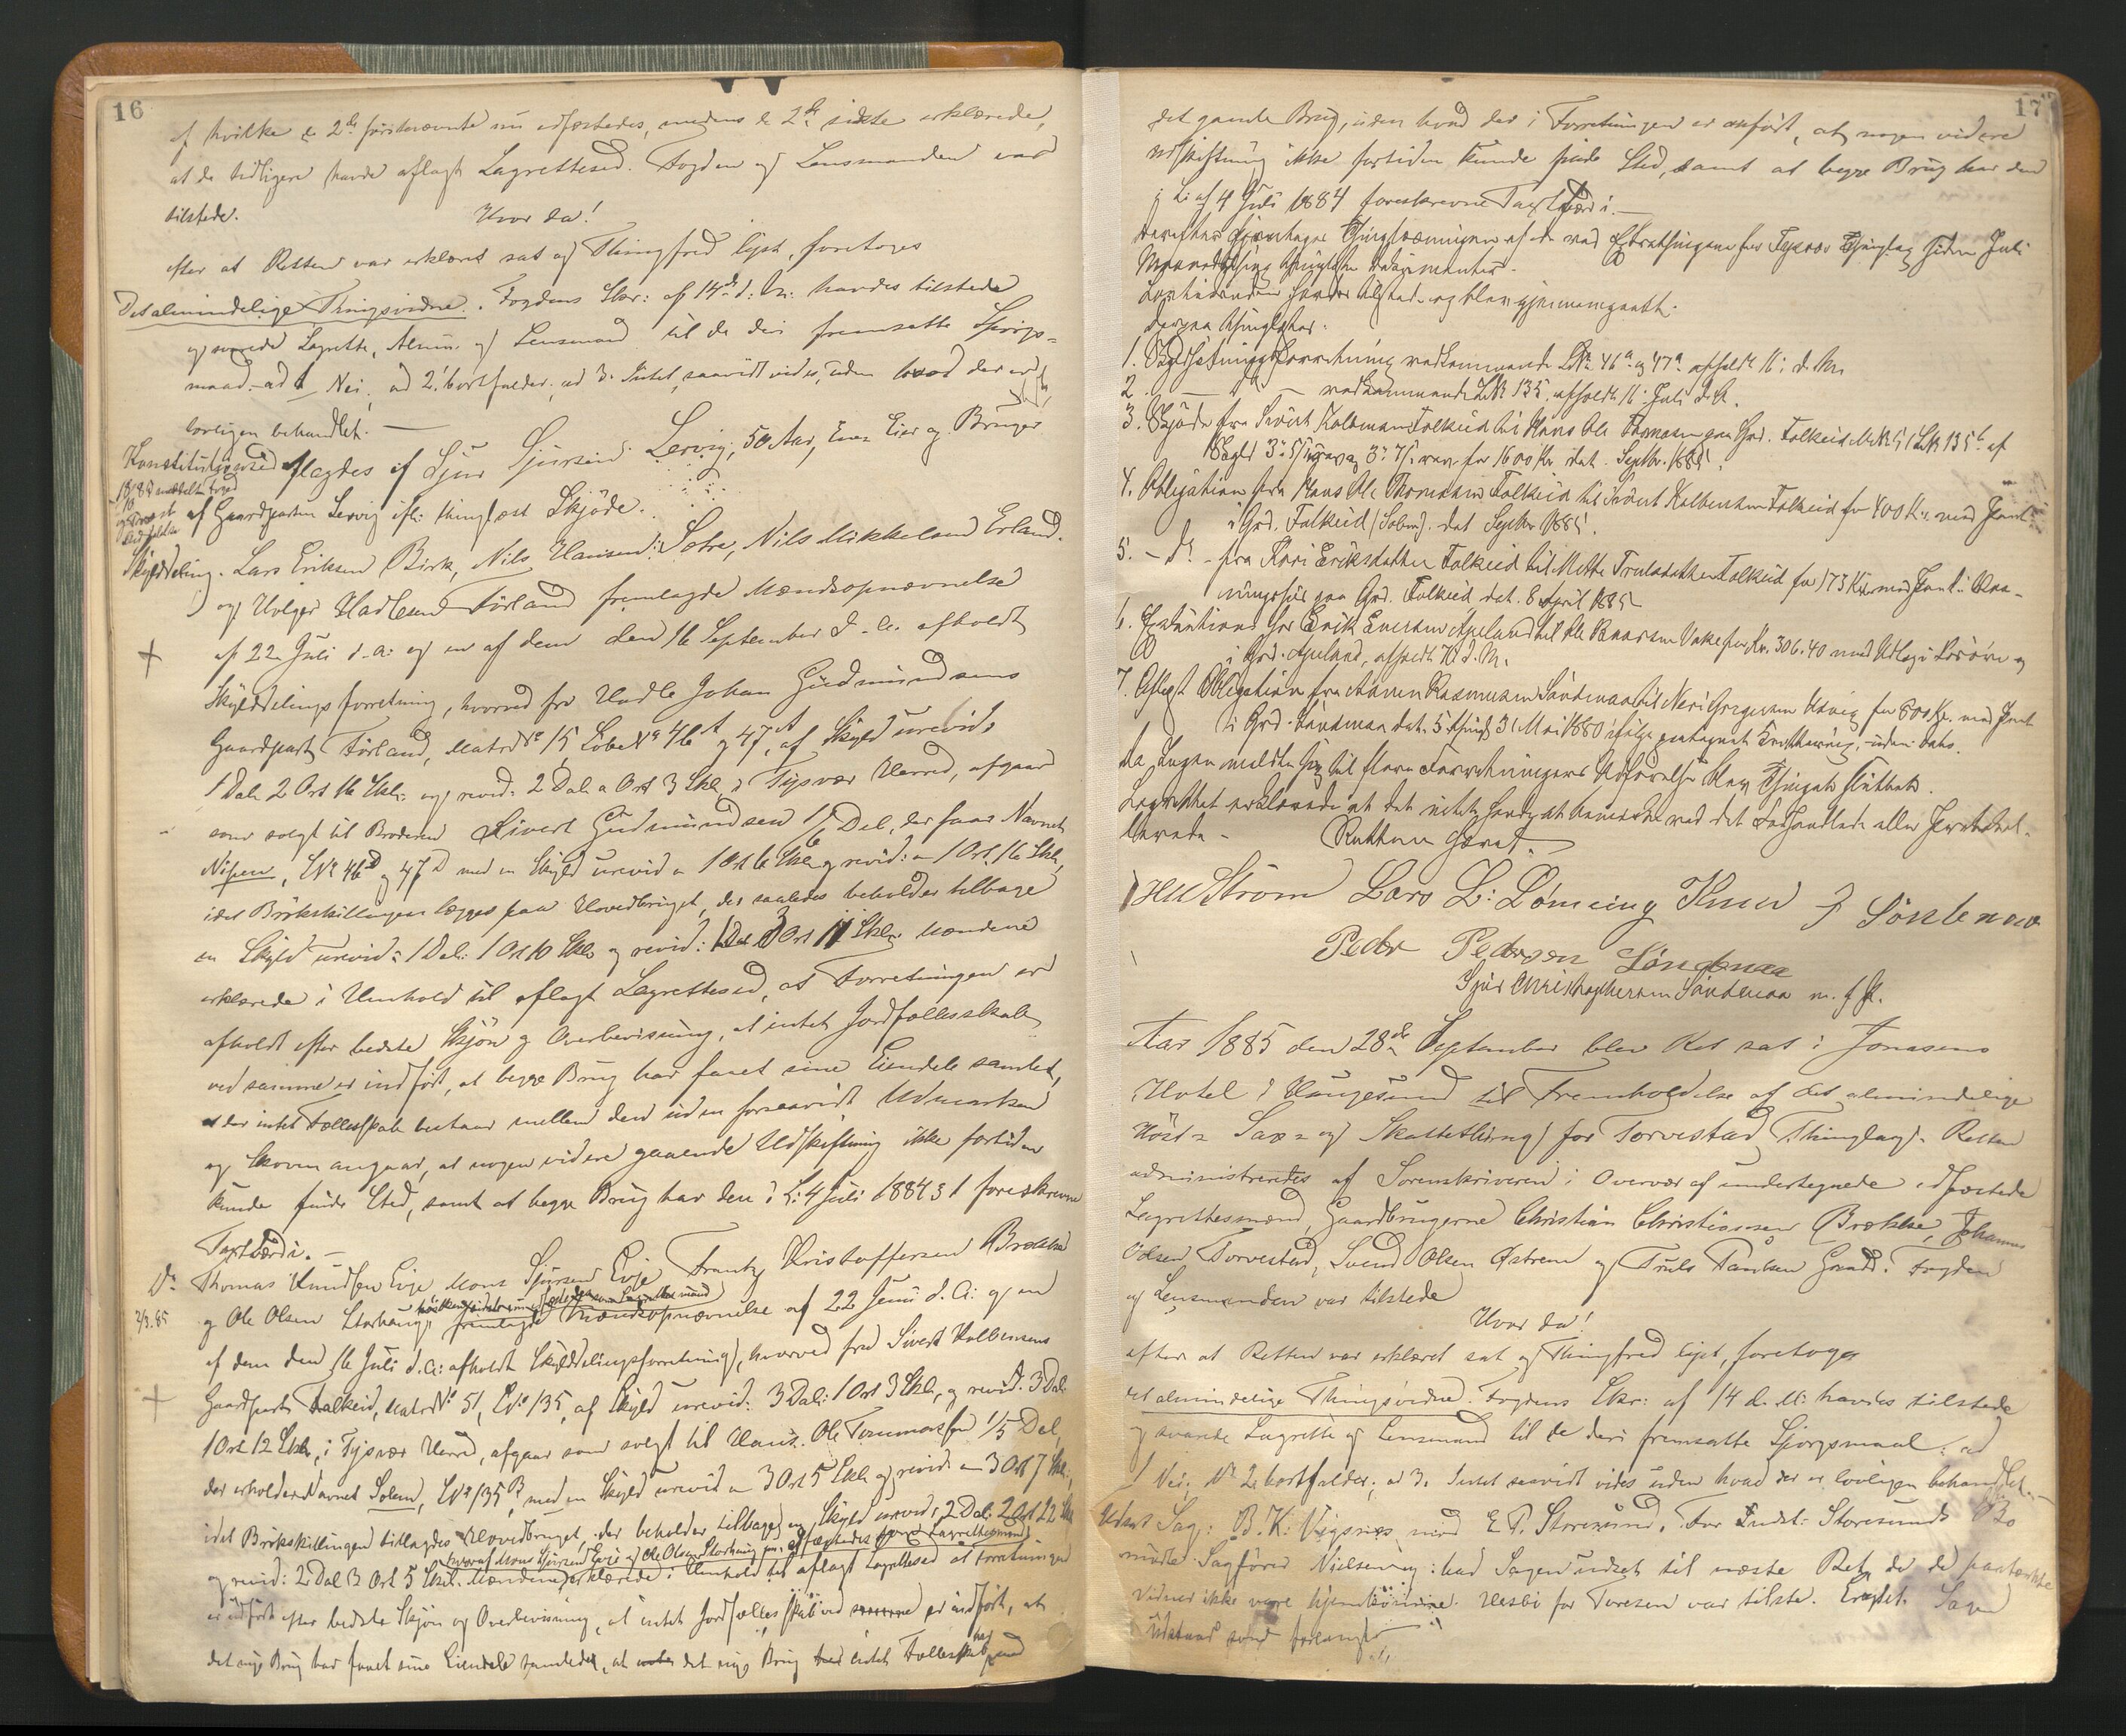 16
af hvilke de 2de førstnævnte nu edfæstedes, medens de 2de sidste erklærede,
at de tidligere havde aflagt Lagrettesed. Fogden og Lensmanden var
tilstede.
Hvor da!
efter at Retten var erklæret sat og Thingfred lyst, foretoges
Det almindelige Thingsvidne. Fogdens Skr: af 14de d: M: havdes tilstede
og svarede Lagrette, Almue og Lensmand til de deri fremsatte Spørgs-
maal: ad 1 Nei, ad 2. bortfalder, ad 3. Intet, saavidt vides, uden hvad der er
lovligen behandlet.
Konstitutionsed aflagdes af Sjur Sjursen Lervig, 50 Aar, Eier og Bruger
af Gaardparten Lervig ifl: thinglæst Skjøde.
Skylddeling. Lars Eriksen Birk, Nils Hansen Sotre, Nils Mikkelsen Erland
og Holger Hadlesen Førland fremlagde Mandsopnævnelse
af 22 Juli d. A: og en af dem den 16 September d. A. afholdt
Skylddelingsforretning, hvorved fra Hadle Johan Gudmundsens
Gaardpart Førland, Matr No 15, Løbe No 46A og 47A, af Skyld urevid:
1 Dal 2 Ort 16 Skl: og revid: 2 Dal 0 Ort 3 Skl i Tysvær Herred, afgaar
som solgt til Broderen Sivert Gudmundsen 1/6 Del, der faar Navnet
Nipen, LNo 46D og 47D med en Skyld urevid a 1 Ort 6 Skl og revid: a 1 Ort 16 Skl,
idet Brøkskillingen lægges paa Hovedbruget, der saaledes beholder tilbage
en Skyld urevid: 1 Dal: 1 Ort 10 Skl og revid: 1 Dal 3 Ort 11 Skl. Mændene
erklærede i Henhold til aflagt Lagrettesed, at Forretningen er
afholdt efter bedste Skjøn og Overbevisning, at intet Jordfællesskab
ved samme er indført, at begge Brug har faaet sine Eiendele samlet,
at der intet Fællesskab bestaar mellem dem uden forsaavidt Udmarken
og Skoven angaar, at nogen videre gaaende Udskiftning ikke fortiden
kunde finde Sted, samt at begge Brug har den i L: 4 Juli 1884 § 1 foreskrevne
Taxtværdi.
Do Thomas Knudsen Eije Mons Sjursen Eije Frantz Kristoffersen Brække
2/9.85 og Ole Olsen Storhaug fremlagde Mandsopnævnelse af 22 Juni d. A: og en
af dem den 16 Juli d. A: afholdt Skylddelingsforretning, hvorved fra Sivert Kolbensens
Gaardpart Falkeid, Matr No 51, LNo 135, af Skyld urevid: 3 Dal: 1 Ort 3 Skl, og revid: 3 Dal:
1 Ort 12 Skl, i Tysvær Herred, afgaar som solgt til Hans Ole Tommassen 1/5 Del,
der erholder Navnet Solem, LNo 135B, med en Skyld urevid a 3 Ort 5 Skl og revid: a 3 Ort 7 Skl:,
idet Brøkskillingen tillægges Hovedbruget, der beholder tilbage en Skyld urevid: 2 Dal: 2 Ort 22 Skl
hvoraf Mons Sjursen Eije og Ole Olsen Storhaug edfæstedes som Lagrettesmænd
og revid: 2 Dal 3 Ort 5 Skl. Mændene erklærede i Henhold til aflagt Lagrettesed at Forretningen
er udført efter bedste Skjøn og Overbevisning, at intet Jordfællesskab ved samme er indført, at
det nye Brug har faaet sine Eiendele samlede, at det nye Brug intet Fællesskab har med
17
det gamle Brug, uden hvad der i Forretningen er anført, at nogen videre
Udskiftning ikke fortiden kunde finde Sted, samt at begge Brug har den
i L: af 4 Juli 1884 foreskrevne Taxtværdi.
Derefter foretages Thinglæsningen af de ved Extrathingene for Tysvær Thinglag siden Juli
Maaned thinglæste Dokumenter.
Lovtidenden havdes tilstede og blev gjennemgaaet.
Derpaa thinglæstes:
1. Skylddelingsforretning vedkommende LNr. 46a og 47a afholdt 16: d. M.
2. — do — vedkommende LNr 135, afholdt 16: Juli d. A.
3. Skjøde fra Sivert Kolbensen Falkeid til Hans Ole Thomassen paa Grd. Falkeid MNr 51 LNr 135b af
for 1600 Kr. dat. Septbr. 1885.
4. Obligation fra Hans Ole Thomassen Falkeid til Sivert Kolbensen Falkeid for 400 Kr. med Pant
i Grd. Falkeid (Solem). dat Septbr 1885.
5. — do — fra Kari Eriksdatter Falkeid til Mette Trulsdatter Falkeid for 173 Kroner med Pant i Vaa-
ningshus paa Grd. Falkeid dat. 8 April 1885
6. Exekution hos Erik Enersen Apeland til Ole Baarsen Vake for Kr. 306.40 med Udlæg i Løsøre og
i Grd. Apeland, afholdt d. M.
7. Aflyst Obligation fra Rasmussen Søndenaa til Gregersen for 800 Kr. med Pant
i Grd. Søndenaa dat. 5 thingl. 31 Mai 1880 ifølge paategnet Kvittering, uden Dato.
Da Ingen meldte sig til flere Forretningers Udførelse blev Thinget sluttet.
Lagrettet erklærede at det intet havde at bemærke ved det Forhandlede eller Protokol-
lerede.
Retten hævet.
Strøm Lars L: Lønning Knud J Søndenaa
Peder Pedersen Søndenaa
Sjur Christophersen Søndenaa m. f. P.
Aar 1885 den 28de September blev Ret sat i Jonasens
Hotel i Haugesund til Fremholdelse af det almindelige
Høst= Sage= og Skattething for Torvestad Thinglag. Retten
administreredes af Sorenskriveren i Overvær af undertegnede edfæstede
Lagrettesmænd, Gaardbrugerne Christian Christiansen Brække, Johannes
Olsen Torvestad, Svend Olsen Østrem og Truls Paulsen Gunds. Fogden
og Lensmanden var tilstede
Hvor da!
efter at Retten var erklæret sat og Thingfred lyst, foretoges
det almindelige Thingsvidne. Fogdens Skr: af 14 d. M: havdes tilstede
og svarede Lagrette og Lensmand til de deri fremsatte Spørgsmaal: ad
1 Nei, No 2. bortfalder, ad 3. Intet saavidt vides uden hvad der er lovligen behandlet.
Udsat Sag: B. K. Vigsnes mod E. P. Storesund. For Indst: Storesund
mødte Sagfører Nielsen og: bad Sagen udsat til næste Ret, da de paatænkte
Vidner ikke vare hjemkomne. for Toresen var tilstede. Eragtet. Sagen
Udstaar som forlangt